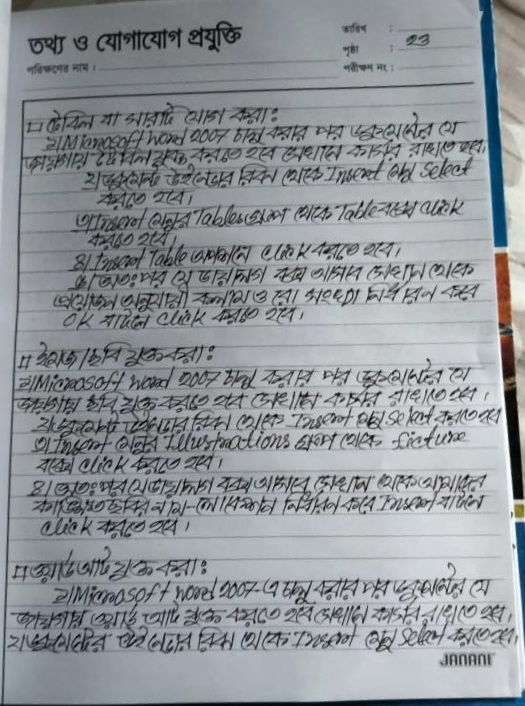 তথ্য ও যোগাযোগ প্রযুক্তি
তারিখ :
পৃষ্ঠা : 23
পরিক্ষণের নাম :
পরীক্ষণ নং :
□ টেবিল বা সারণি যোগ করা:
১) Microsoft Word 2007 চালু করার পর ডকুমেন্টের যে
জায়গায় টেবিল যুক্ত করতে হবে সেখানে কার্সর রাখতে হবে।
২) ডকুমেন্ট উইন্ডোর রিবন থেকে Insert মেনু Select
করতে হবে।
৩) Insert মেনুর Tables গ্রুপ থেকে Table বক্সে click
করতে হবে।
৪) Insert Table অপশনে click করতে হবে।
৫) অতঃপর যে ডায়ালগ বক্স আসবে সেখান থেকে
প্রয়োজন অনুযায়ী কলাম ও রো সংখ্যা নির্ধারন করে
OK বাটনে click করতে হবে।
□ ইমেজ/ছবি যুক্ত করা:
১) Microsoft Word 2007 চালু করার পর ডকুমেন্টের যে
জায়গায় ছবি যুক্ত করতে হবে সেখানে কার্সর রাখতে হবে।
২) ডকুমেন্ট উইন্ডোর রিবন থেকে Insert মেনু Select করতে হবে
৩) Insert মেনুর Illustrations গ্রুপ থেকে Picture
বক্সে click করতে হবে।
৪) অতঃপর যে ডায়ালগ বক্স আসবে সেখান থেকে আমাদের
কাঙ্ক্ষিত ছবির নাম-লোকেশন নির্ধারন করে Insert বাটনে
click করতে হবে।
□ ওয়ার্ড আর্ট যুক্ত করা:
১) Microsoft Word 2007-এ চালু করার পর ডকুমেন্টের যে
জায়গায় ওয়ার্ড আর্ট যুক্ত করতে হবে সেখানে কার্সর রাখতে হবে,
২) ডকুমেন্টের উইন্ডোর রিবন থেকে Insert মেনু Select করতে হবে,
JANANI